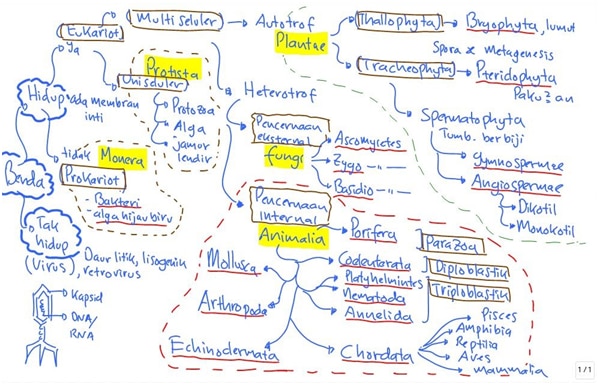 Benda
Hidup
ada membran
inti
Ya
Eukariot
Multi seluler
Protista
Uniseluler
Protozoa
Alga
jamur
lendir
tidak
Monera
Prokariot
Bakteri
alga hijau biru
Tak
hidup
(Virus),
Daur litik, lisogenik
retrovirus
Kapsid
DNA/
RNA
Autotrof
Plantae
Thallophyta
Bryophyta, lumut
Spora & metagenesis
Tracheophyta
Pteridophyta
Paku²an
Spermatophyta
Tumb. berbiji
Gymnospermae
Angiospermae
Dikotil
Monokotil
Heterotrof
Pencernaan
eksternal
fungi
Ascomycetes
Zygo -"-
Basidio -"-
Pencernaan
internal
Animalia
Porifera
Parazoa
Coelenterata
Diploblastik
Platyhelmintes
Triploblastik
Nematoda
Annelida
Mollusca
Arthropoda
Echinodermata
Chordata
Pisces
Amphibia
Reptilia
Aves
mammalia
1/1